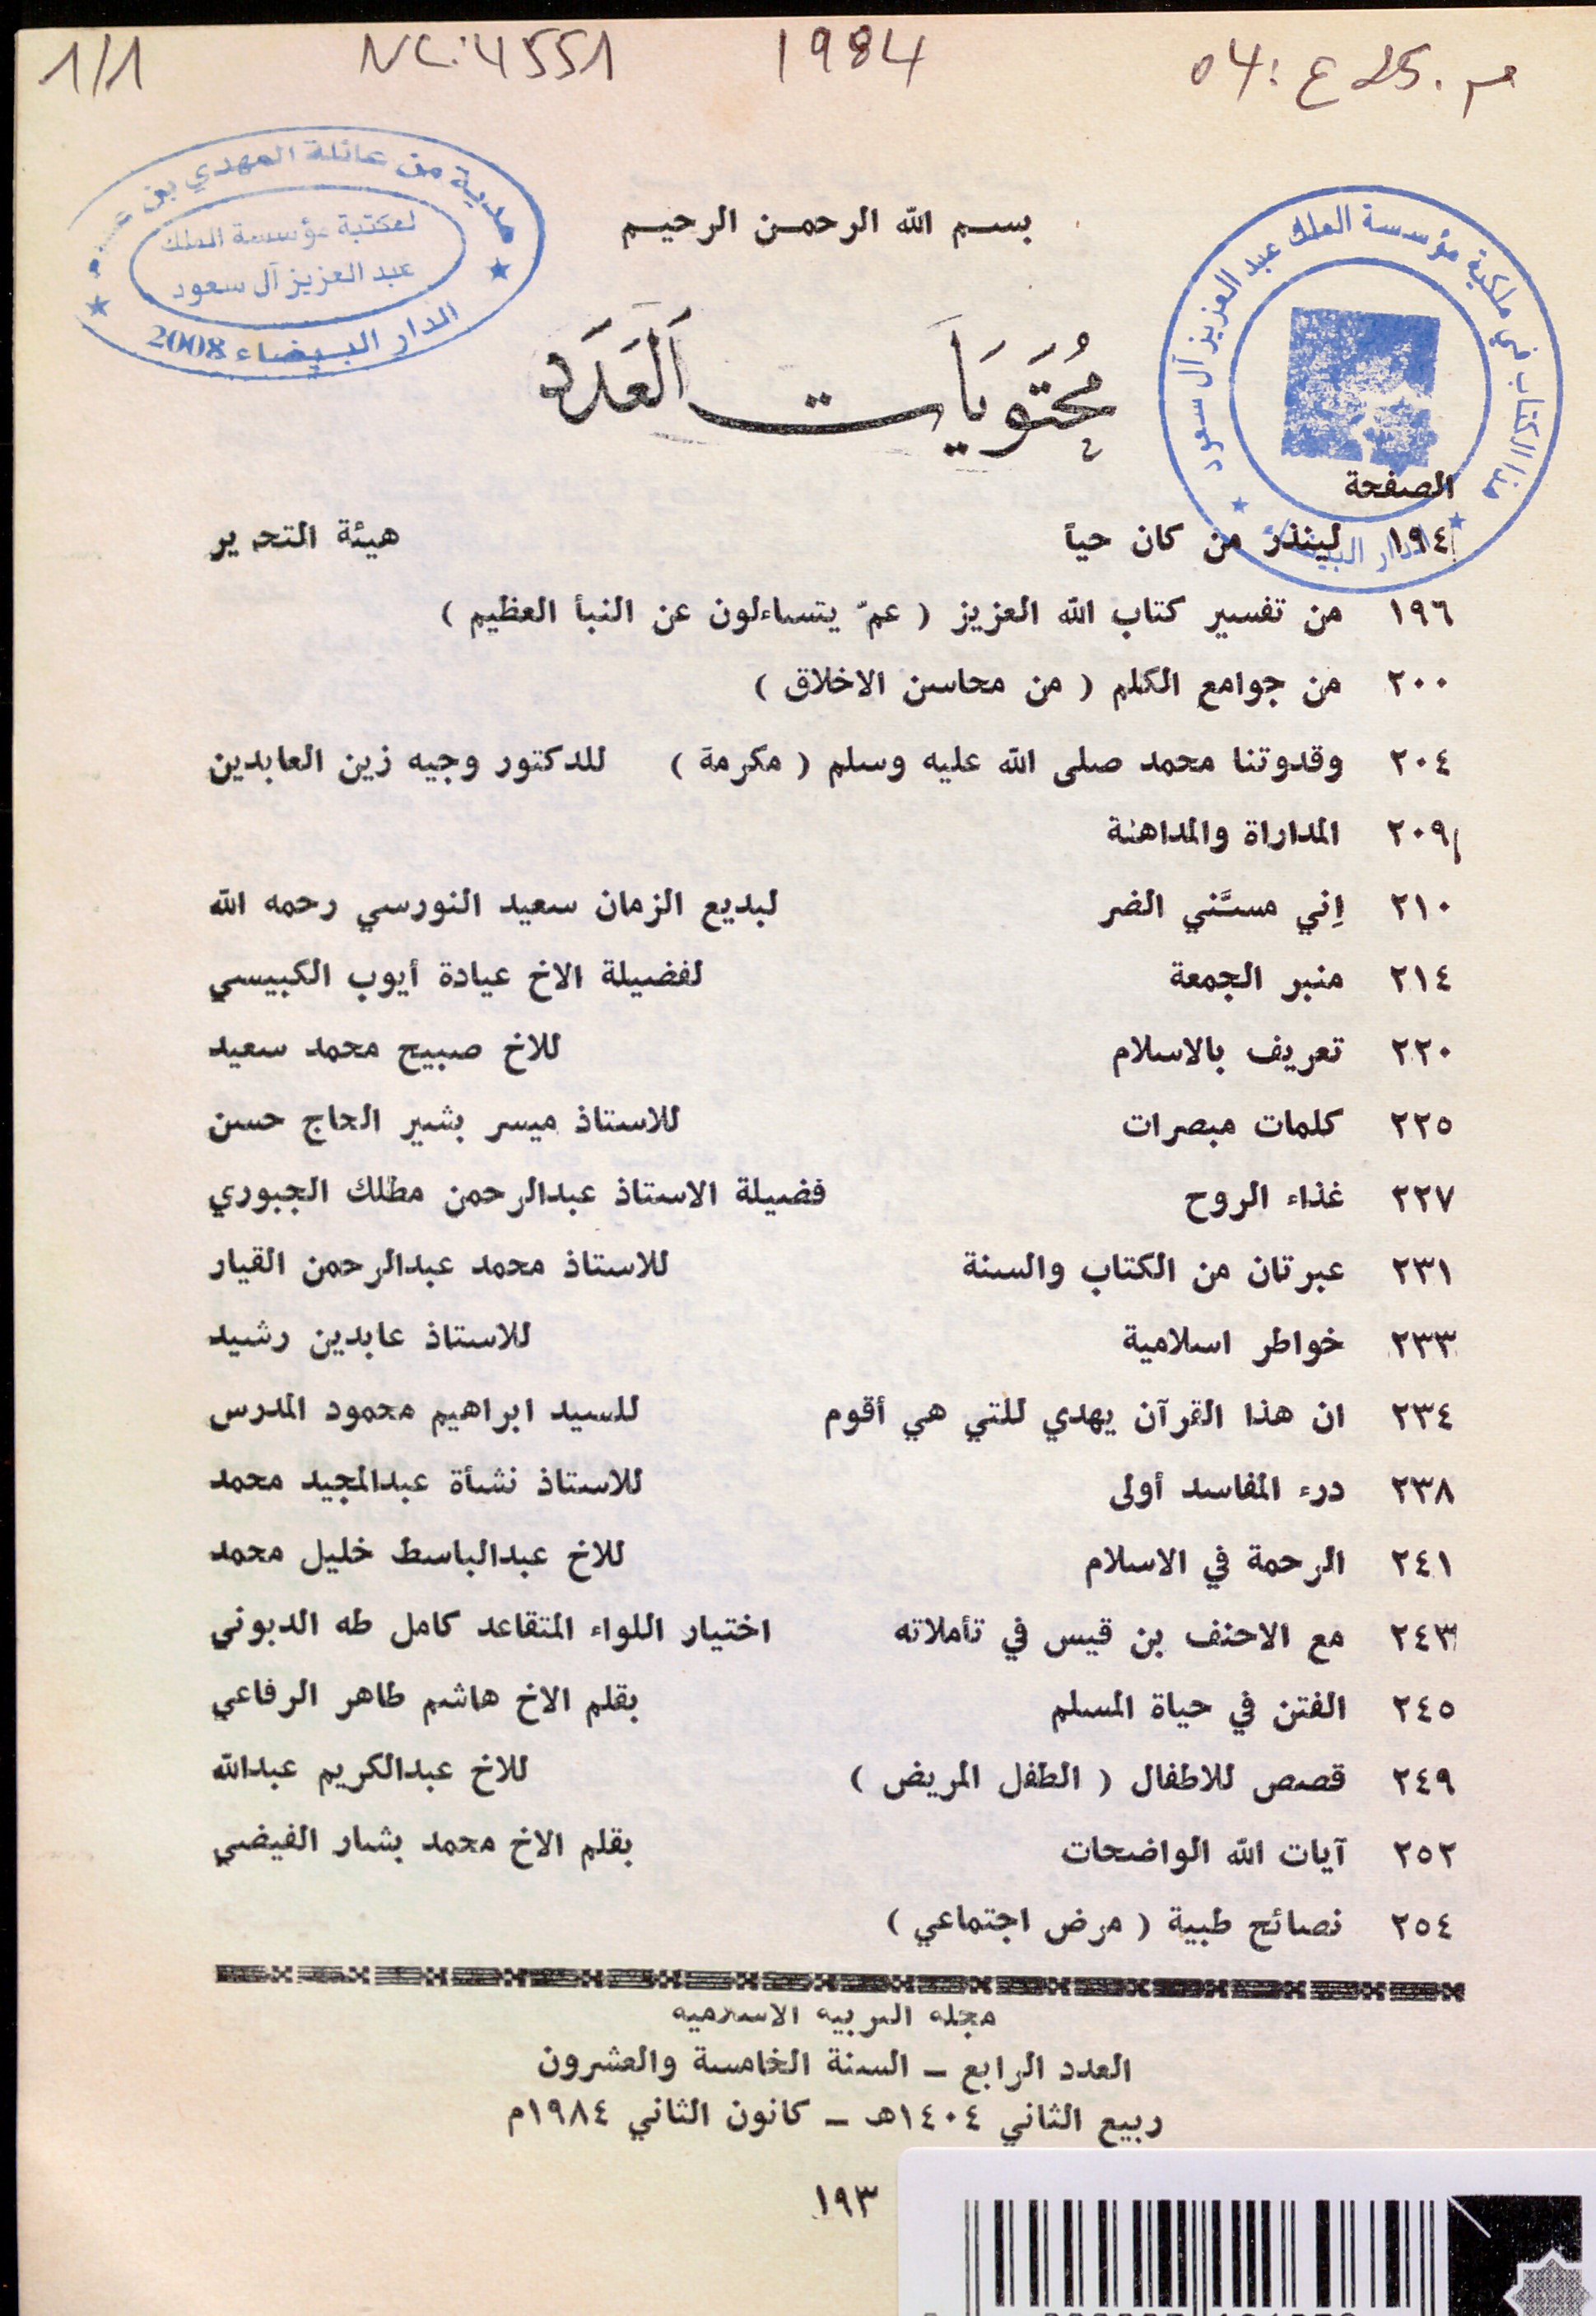 1/1 NC:4551 1984 04: ع 25. م
هدية من عائلة المهدي بن
لمكتبة مؤسسة الملك
عبد العزيز آل سعود
الدار البيضاء 2008
هذا الكتاب في ملكية مؤسسة الملك عبد العزيز آل سعود
الدار البيضاء
بسم الله الرحمن الرحيم
مُحتَوَيَات اَلعَدَد
الصفحة
١٩٤ لينذر من كان حياً هيئة التحرير
١٩٦ من تفسير كتاب الله العزيز ( عمّ يتساءلون عن النبأ العظيم )
٢٠٠ من جوامع الكلم ( من محاسن الاخلاق )
٢٠٤ وقدوتنا محمد صلى الله عليه وسلم ( مكرمة ) للدكتور وجيه زين العابدين
٢٠٩ المداراة والمداهنة
٢١٠ إني مسَّني الضر لبديع الزمان سعيد النورسي رحمه الله
٢١٤ منبر الجمعة لفضيلة الاخ عيادة أيوب الكبيسي
٢٢٠ تعريف بالاسلام للاخ صبيح محمد سعيد
٢٢٥ كلمات مبصرات للاستاذ ميسر بشير الحاج حسن
٢٢٧ غذاء الروح فضيلة الاستاذ عبدالرحمن مطلك الجبوري
٢٣١ عبرتان من الكتاب والسنة للاستاذ محمد عبدالرحمن القيار
٢٣٣ خواطر اسلامية للاستاذ عابدين رشيد
٢٣٤ ان هذا القرآن يهدي للتي هي أقوم للسيد ابراهيم محمود المدرس
٢٣٨ درء المفاسد أولى للاستاذ نشأة عبدالمجيد محمد
٢٤١ الرحمة في الاسلام للاخ عبدالباسط خليل محمد
٢٤٣ مع الاحنف بن قيس في تأملاته اختيار اللواء المتقاعد كامل طه الدبوني
٢٤٥ الفتن في حياة المسلم بقلم الاخ هاشم طاهر الرفاعي
٢٤٩ قصص للاطفال ( الطفل المريض ) للاخ عبدالكريم عبدالله
٢٥٢ آيات الله الواضحات بقلم الاخ محمد بشار الفيضي
٢٥٤ نصائح طبية ( مرض اجتماعي )
مجلة التربية الاسلامية
العدد الرابع ــ السنة الخامسة والعشرون
ربيع الثاني ١٤٠٤هـ ــ كانون الثاني ١٩٨٤م
١٩٣